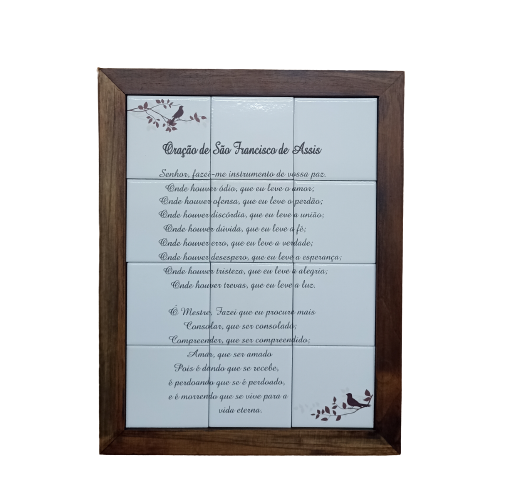 Oração de São Francisco de Assis
Senhor, fazei-me instrumento de vossa paz.
Onde houver ódio, que eu leve o amor;
Onde houver ofensa, que eu leve o perdão;
Onde houver discórdia, que eu leve a união;
Onde houver dúvida, que eu leve a fé;
Onde houver erro, que eu leve a verdade;
Onde houver desespero, que eu leve a esperança;
Onde houver tristeza, que eu leve a alegria;
Onde houver trevas, que eu leve a luz.
Ó Mestre, Fazei que eu procure mais
Consolar, que ser consolado;
Compreender, que ser compreendido;
Amar, que ser amado
Pois é dando que se recebe,
é perdoando que se é perdoado,
e é morrendo que se vive para a
vida eterna.